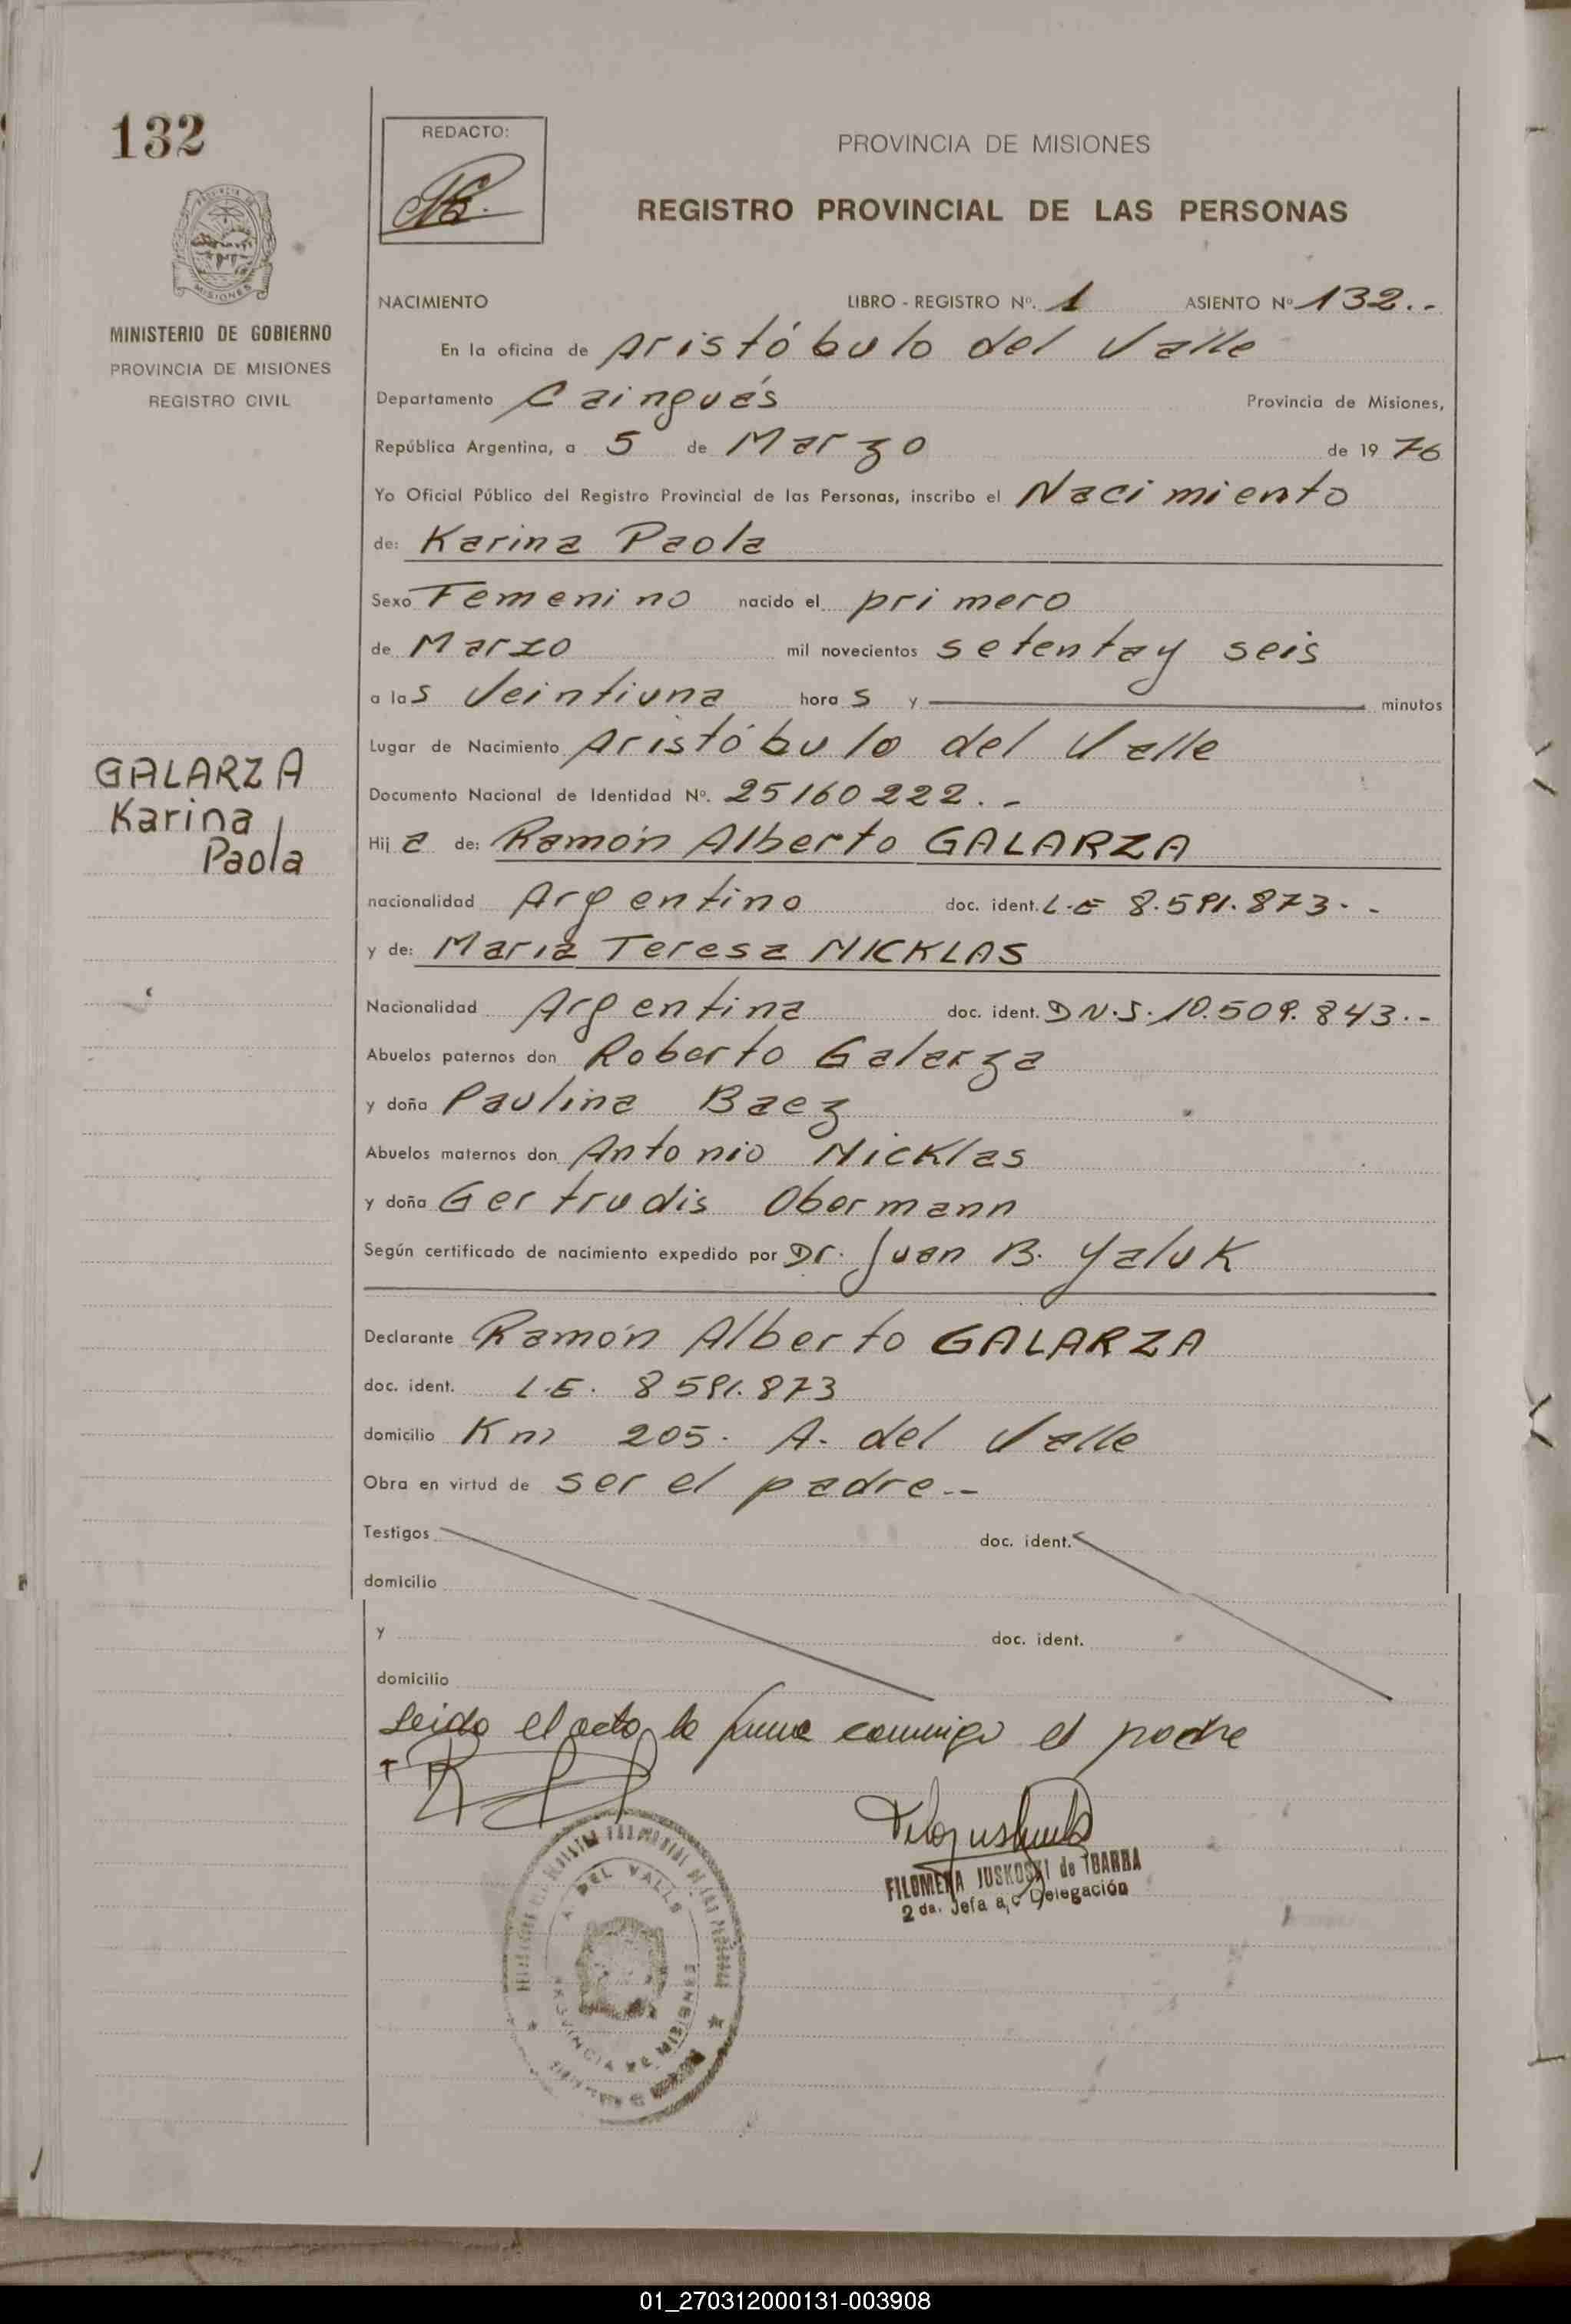 132
REDACTO:
PROVINCIA DE MISIONES
REGISTRO PROVINCIAL DE LAS PERSONAS
MISIONES
MINISTERIO DE GOBIERNO
PROVINCIA DE MISIONES
REGISTRO CIVIL
NACIMIENTO LIBRO - REGISTRO Nº. 1 ASIENTO Nº 132.-
En la oficina de Aristóbulo del Valle
Departamento Cainguás Provincia de Misiones,
República Argentina, a 5 de Marzo de 1976
Yo Oficial Público del Registro Provincial de las Personas, inscribo el Nacimiento
de: Karina Paola
Sexo Femenino nacido el primero
de Marzo mil novecientos setenta y seis
a las Veintiuna horas y minutos
Lugar de Nacimiento Aristóbulo del Valle
GALARZA
Karina
Paola
Documento Nacional de Identidad Nº. 25160222.-
Hija de: Ramón Alberto GALARZA
nacionalidad Argentino doc. ident. L.E 8.591.873.-
y de: María Teresa NICKLAS
Nacionalidad Argentina doc. ident. D N.I. 10.509.843.-
Abuelos paternos don Roberto Galarza
y doña Paulina Baez
Abuelos maternos don Antonio Nicklas
y doña Gertrudis Obermann
Según certificado de nacimiento expedido por Dr. Juan B. Yaluk
Declarante Ramón Alberto GALARZA
doc. ident. L.E. 8 591.873
domicilio Km 205. A. del Valle
Obra en virtud de ser el padre.-
Testigos doc. ident.
domicilio
y doc. ident.
domicilio
Leido el acta, la firma conmigo el padre
FILOMENA JUSKOSKI de IBARRA
2 da. Jefa a/c Delegación
A. DEL VALLE
PROVINCIA DE MISIONES
01_270312000131-003908